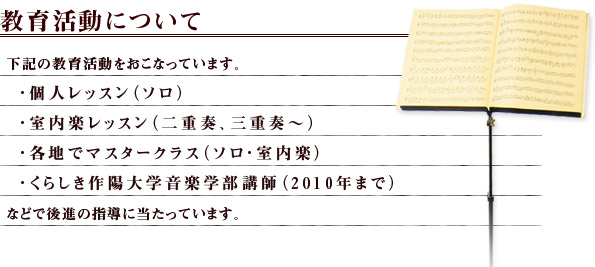 教育活動について
下記の教育活動をおこなっています。
・個人レッスン（ソロ）
・室内楽レッスン（二重奏、三重奏～）
・各地でマスタークラス（ソロ・室内楽）
・くらしき作陽大学音楽学部講師（2010年まで）
などで後進の指導に当たっています。